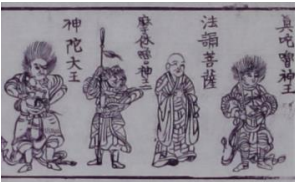 真陀神王
法誦菩薩
摩休神王
神陀大王